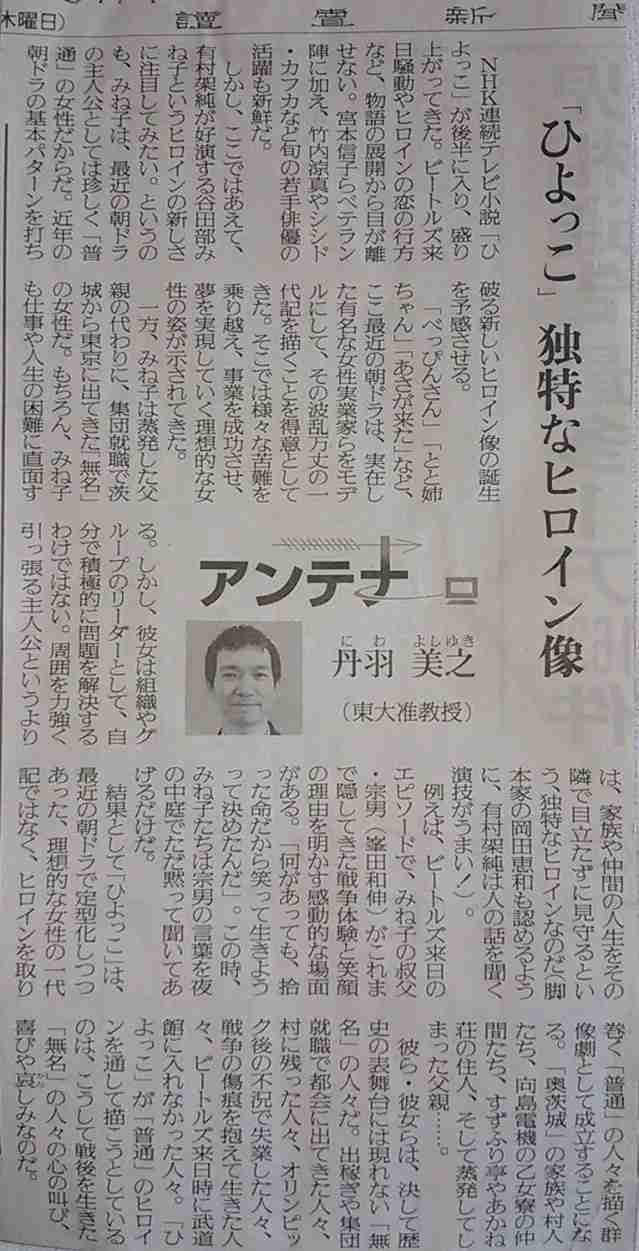 木曜日)
讀賣新聞
「ひよっこ」独特なヒロイン像
ＮＨＫ連続テレビ小説「ひ
よっこ」が後半に入り、盛り
上がってきた。ビートルズ来
日騒動やヒロインの恋の行方
など、物語の展開から目が離
せない。宮本信子らベテラン
陣に加え、竹内涼真やシシド
・カフカなど旬の若手俳優の
活躍も新鮮だ。
しかし、ここではあえて、
有村架純が好演する谷田部み
ね子というヒロインの新しさ
に注目してみたい。というの
も、みね子は、最近の朝ドラ
の主人公としては珍しく「普
通」の女性だからだ。近年の
朝ドラの基本パターンを打ち
破る新しいヒロイン像の誕生
を予感させる。
「べっぴんさん」「とと姉
ちゃん」「あさが来た」など、
ここ最近の朝ドラは、実在し
た有名な女性実業家らをモデ
ルにして、その波乱万丈の一
代記を描くことを得意として
きた。そこでは様々な苦難を
乗り越え、事業を成功させ、
夢を実現していく理想的な女
性の姿が示されてきた。
一方、みね子は蒸発した父
親の代わりに、集団就職で茨
城から東京に出てきた「無名」
の女性だ。もちろん、みね子
も仕事や人生の困難に直面す
アンテナ
丹羽 美之
にわ よしゆき
（東大准教授）
る。しかし、彼女は組織やグ
ループのリーダーとして、自
分で積極的に問題を解決する
わけではない。周囲を力強く
引っ張る主人公というより
は、家族や仲間の人生をその
隣で目立たずに見守るとい
う、独特なヒロインなのだ（脚
本家の岡田恵和も認めるよう
に、有村架純は人の話を聞く
演技がうまい！）。
例えば、ビートルズ来日の
エピソードで、みね子の叔父
・宗男（峯田和伸）がこれま
で隠してきた戦争体験と笑顔
の理由を明かす感動的な場面
がある。「何があっても、拾
った命だから笑って生きよう
って決めたんだ」。この時、
みね子たちは宗男の言葉を夜
の中庭でただ黙って聞いてあ
げるだけだ。
結果として「ひよっこ」は、
最近の朝ドラで定型化しつつ
あった、理想的な女性の一代
記ではなく、ヒロインを取り
巻く「普通」の人々を描く群
像劇として成立することにな
る。「奥茨城」の家族や村人
たち、向島電機の乙女寮の仲
間たち、すずふり亭やあかね
荘の住人、そして蒸発してし
まった父親……。
彼ら・彼女らは、決して歴
史の表舞台には現れない「無
名」の人々だ。出稼ぎや集団
就職で都会に出てきた人々、
村に残った人々、オリンピッ
ク後の不況で失業した人々、
戦争の傷痕を抱えて生きた人
々、ビートルズ来日時に武道
館に入れなかった人々。「ひ
よっこ」が「普通」のヒロイ
ンを通して描こうとしている
のは、こうして戦後を生きた
「無名」の人々の心の叫び、
喜びや哀しみなのだ。